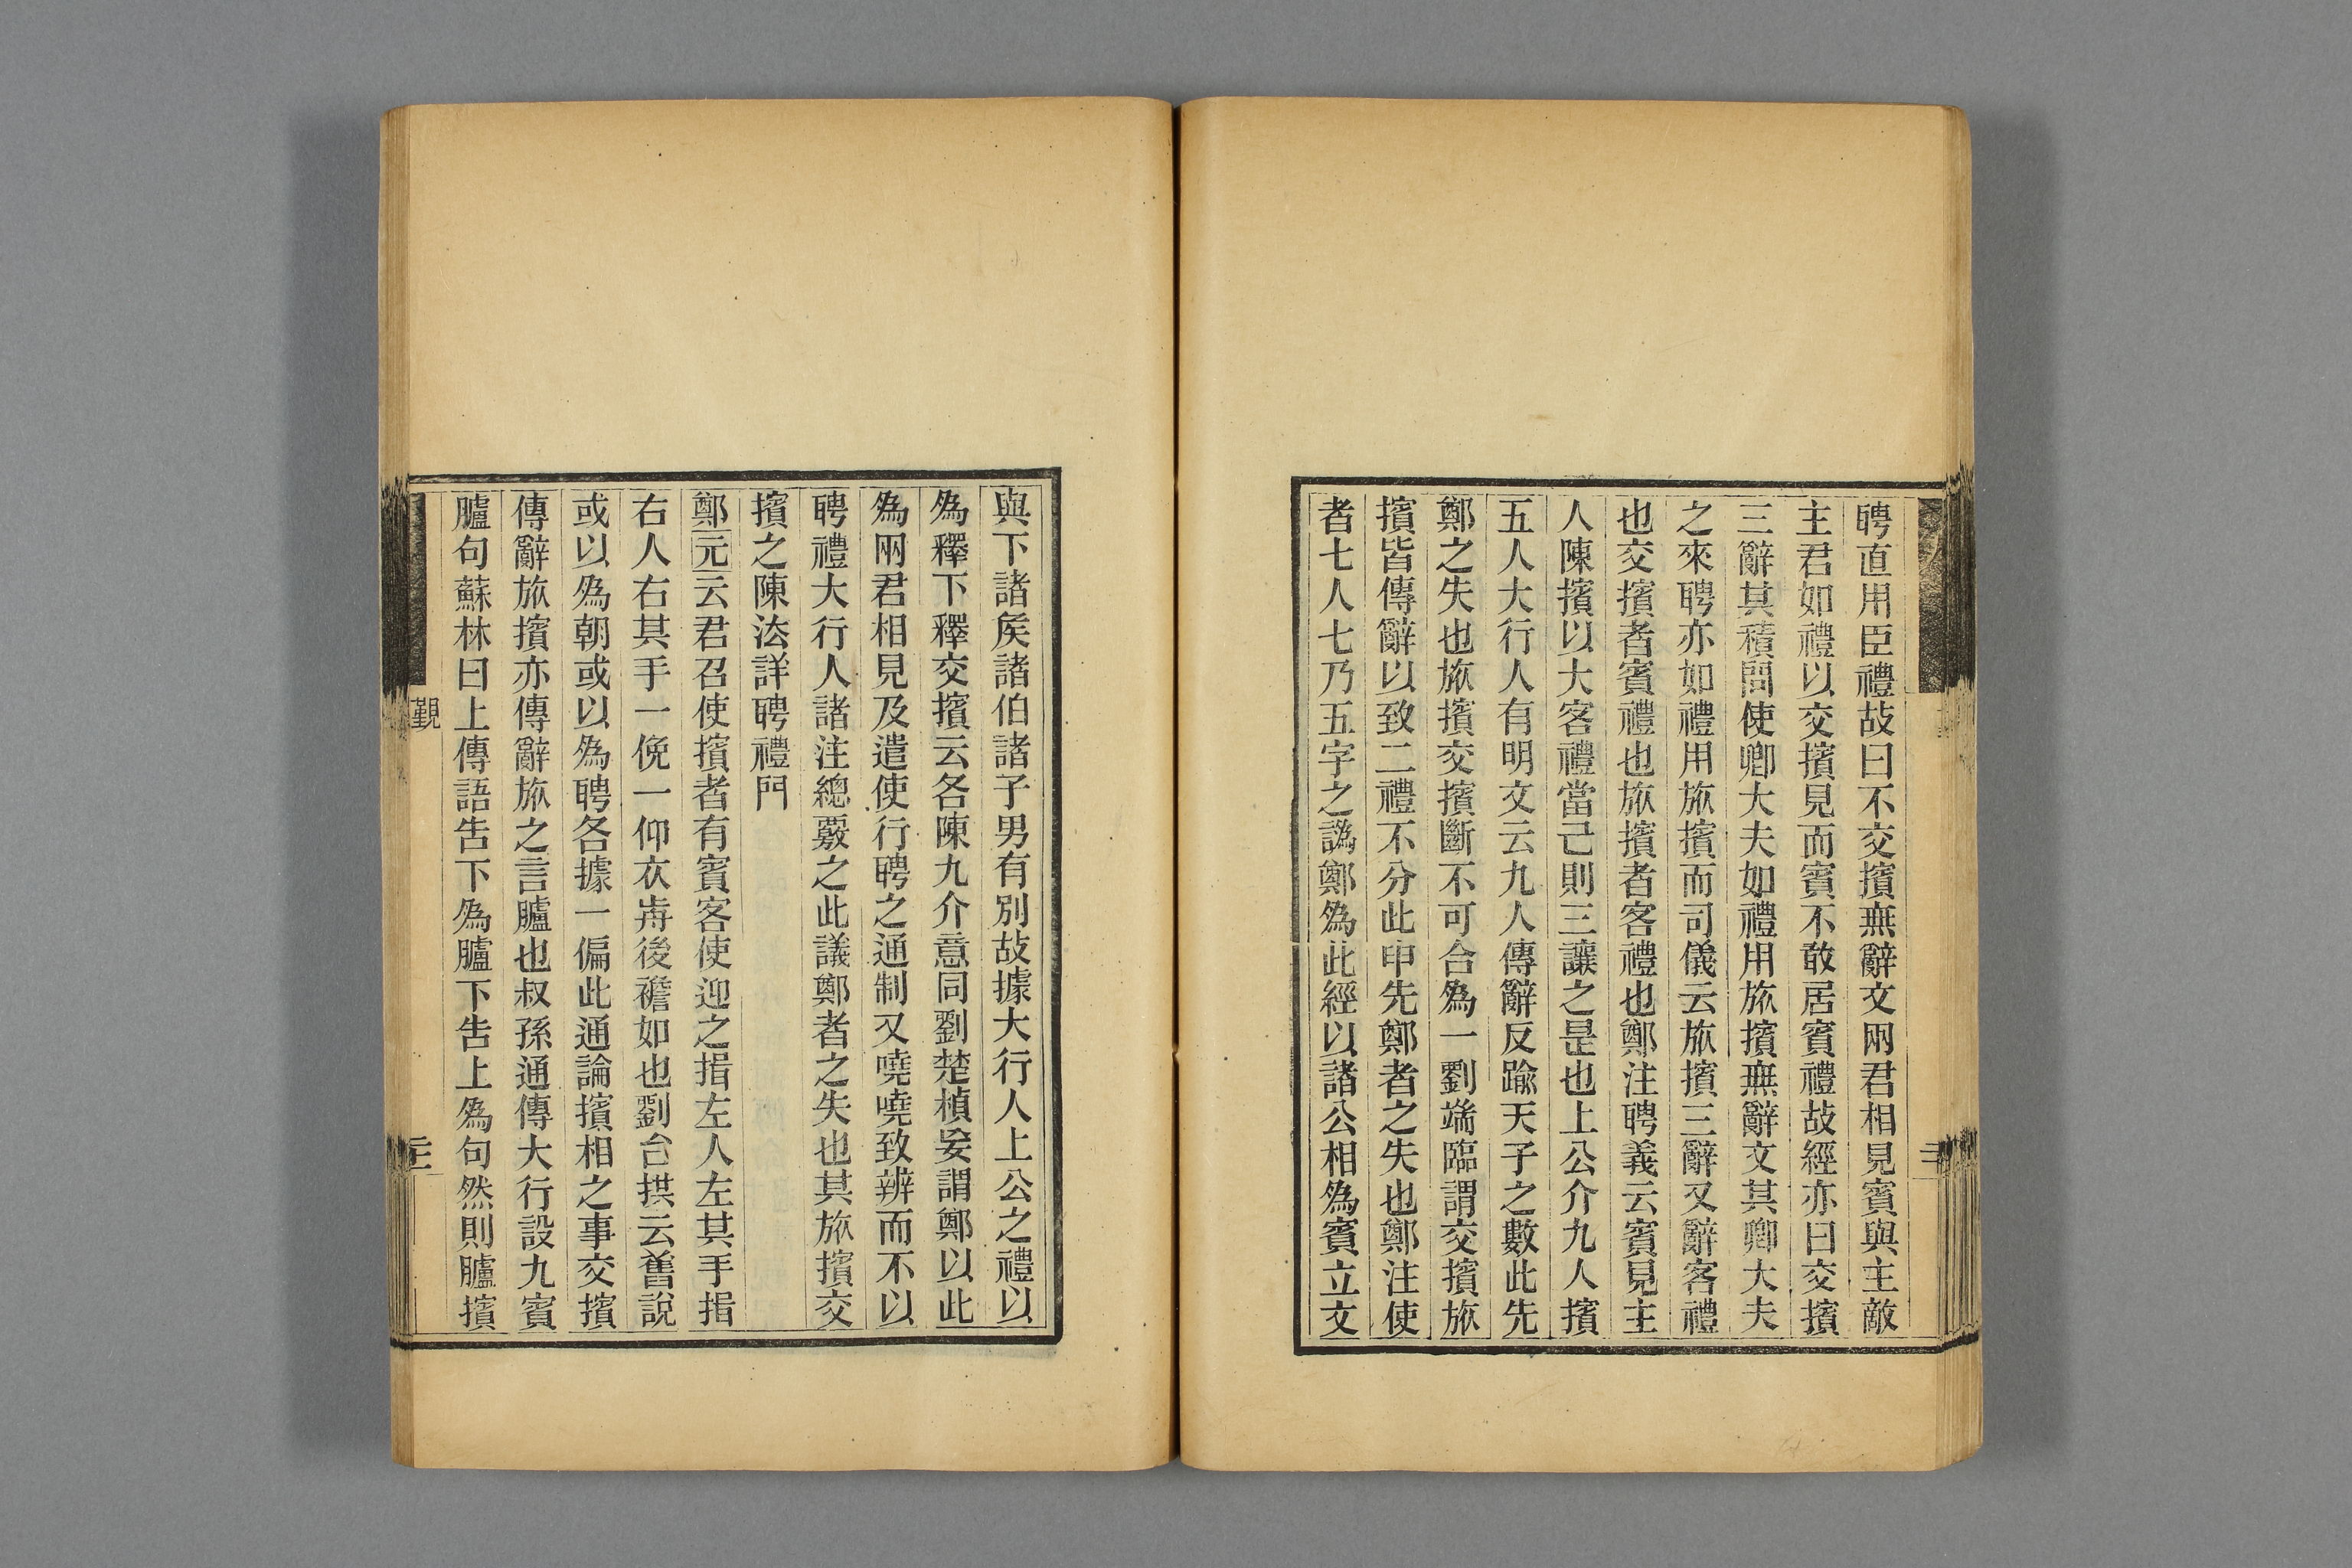 聘直用臣禮故曰不交擯無辭文兩君相見賓與主敵
主君如禮以交擯見而賓不敢居賓禮故經亦曰交擯
三辭其積問使卿大夫如禮用旅擯無辭文其卿大夫
之來聘亦如禮用旅擯而司儀云旅擯三辭又辭客禮
也交擯者賓禮也旅擯者客禮也鄭注聘義云賓見主
人陳擯以大客禮當己則三讓之是也上公介九人擯
五人大行人有明文云九人傳辭反踰天子之數此先
鄭之失也旅擯交擯斷不可合為一劉端臨謂交擯旅
擯皆傳辭以致二禮不分此申先鄭者之失也鄭注使
者七人七乃五字之譌鄭為此經以諸公相為賓立文
與下諸矦諸伯諸子男有別故據大行人上公之禮以
為釋下釋交擯云各陳九介意同劉楚楨妄謂鄭以此
為兩君相見及遣使行聘之通制又嘵嘵致辨而不以
聘禮大行人諸注總覈之此議鄭者之失也其旅擯交
擯之陳法詳聘禮門
鄭元云君召使擯者有賓客使迎之揖左人左其手揖
右人右其手一俛一仰衣歬後襜如也劉台拱云舊說
或以為朝或以為聘各據一偏此通論擯相之事交擯
傳辭旅擯亦傳辭旅之言臚也叔孫通傳大行設九賓
臚句蘇林曰上傳語告下為臚下告上為句然則臚擯
覲